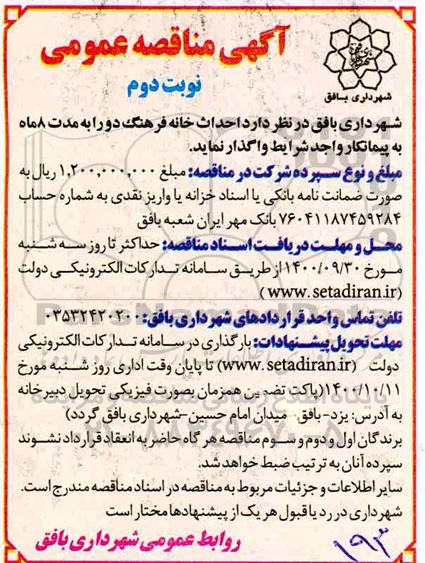 آگهی مناقصه عمومی
نوبت دوم
شهرداری بافق
شهرداری بافق در نظر دارد احداث خانه فرهنگ دو را به مدت ۸ماه
به پیمانکار واجد شرایط واگذار نماید.
مبلغ و نوع سپرده شرکت در مناقصه: مبلغ ۱,۲۰۰,۰۰۰,۰۰۰ ریال به
صورت ضمانت نامه بانکی یا اسناد خزانه یا واریز نقدی به شماره حساب
۷۶۰۴۱۱۸۷۴۵۹۲۸۴ بانک مهر ایران شعبه بافق
محل و مهلت دریافت اسناد مناقصه: حداکثر تا روز سه شنبه
مورخ ۱۴۰۰/۰۹/۳۰ از طریق سامانه تدارکات الکترونیکی دولت
(www.setadiran.ir)
تلفن تماس واحد قراردادهای شهرداری بافق: ۰۳۵۳۲۴۲۰۲۰۰
مهلت تحویل پیشنهادات: بارگذاری در سامانه تدارکات الکترونیکی
دولت (www.setadiran.ir) تا پایان وقت اداری روز شنبه مورخ
۱۴۰۰/۱۰/۱۱(پاکت تضمین همزمان بصورت فیزیکی تحویل دبیرخانه
به آدرس: یزد-بافق- میدان امام حسین-شهرداری بافق گردد)
برندگان اول و دوم و سوم مناقصه هرگاه حاضر به انعقاد قرارداد نشوند
سپرده آنان به ترتیب ضبط خواهد شد.
سایر اطلاعات و جزئیات مربوط به مناقصه در اسناد مناقصه مندرج است.
شهرداری در رد یا قبول هر یک از پیشنهادها مختار است
روابط عمومی شهرداری بافق
۱۹۳